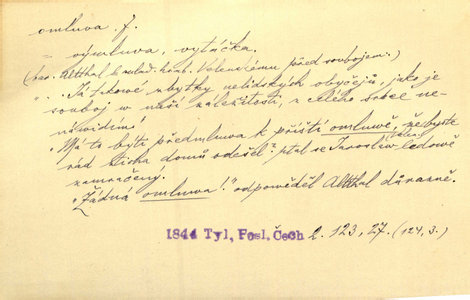 omluva f.
= výmluva, vytáčka.
(bar. Altthal k mlad. hrab. Valenštému před soubojem.)
"... Já takové zbytky nelidských obyčejů, jako je
souboj v naší záležitosti, z celého srdce ne-
návidím!"
"Má to býti předmluva k příští omluvě, že byste
rád ticha domů odešel?" ptal se Jaroslav ledově
zamračený.
"Žádná omluva!" odpověděl Altthal důrazně.
1844 Tyl, Posl. Čech 2. 123, 27. (124, 3.)